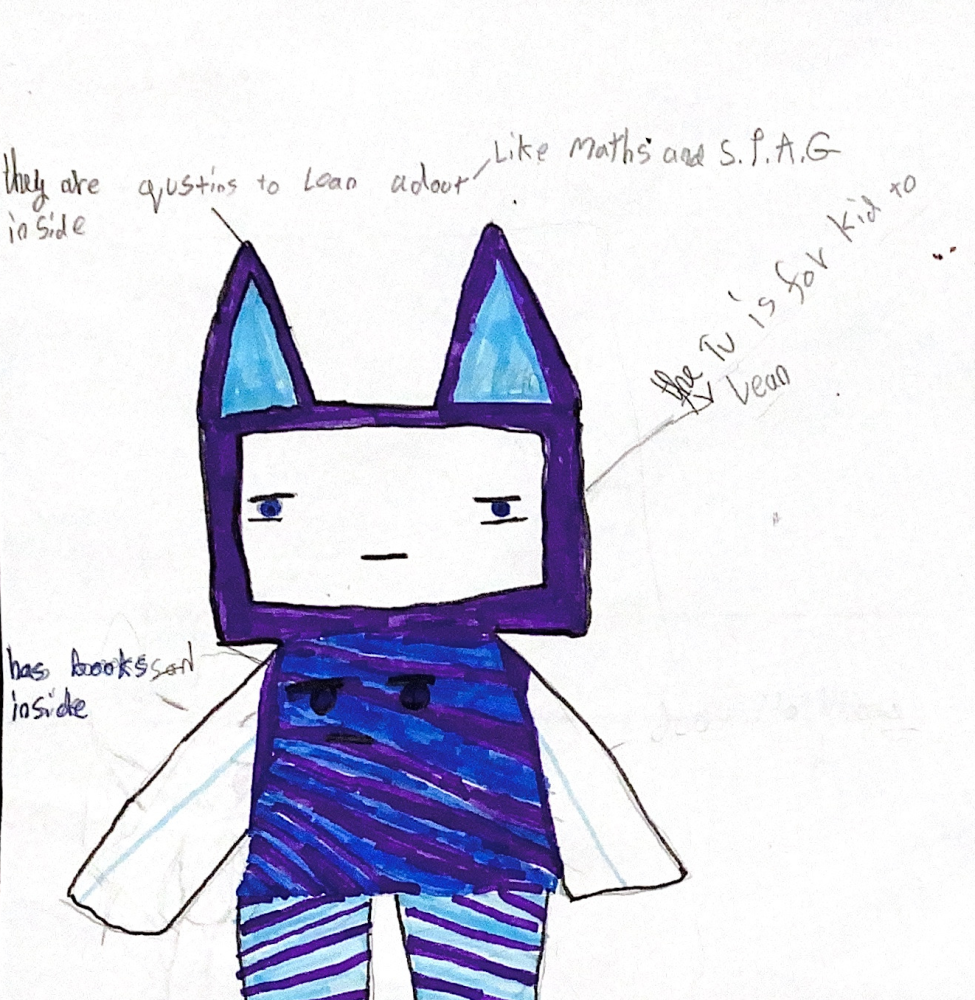 Like maths and S.P.A.G
they are qustins to Lean adout
inside
the TV is for kid to
Lean
has boooks
inside